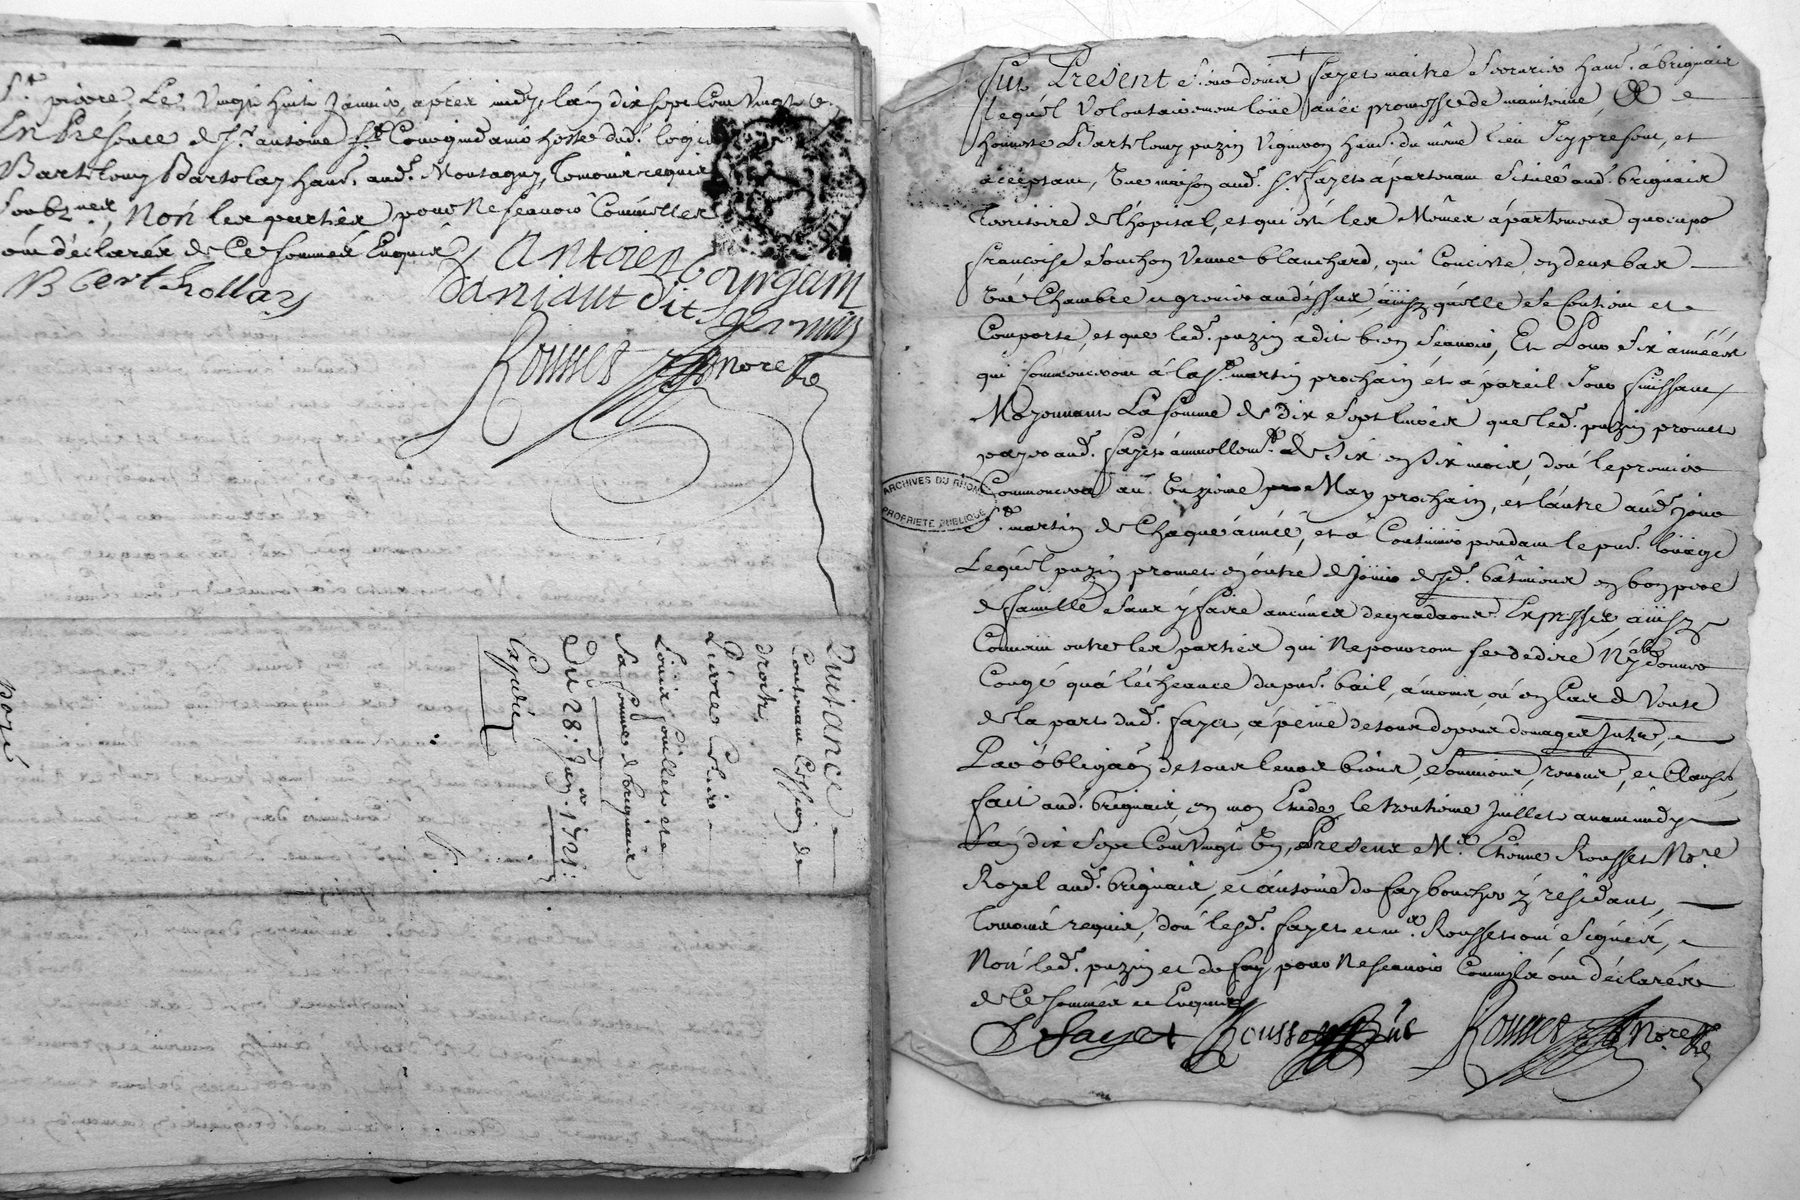 St. pierre, Le Vingt huit Janvier, apres midy, l'an dix sept Cent Vingt e
En Presence de Sr. antoine hoste dud. logis
Barthelemy Bartolay hant. aud. Montagny, Temoins requis
Soubznes, Non les parties pour ne scavoir Comme lles
ont declarés de Ce sommés Enquis
antoien Gourgam
Berthollay
daniaut dit
Rommes Nore Ro
Quitance
Contenant Cession de
droits,
Pierre
Louis Goillet et a
Sa femme de brignais
Du 28e. Janr. 1721
Expedié
ARCHIVES DU RHONE
PROPRIETE PUBLIQUE
Fut Present Sieur denis fayet maitre Serrurier hant. à brignais
lequel Volontairement loüe avec promesse de maintenir, &
honneste Barthelemy puzin Vigneron hant. du même lieu Icy present, et
acceptant, Une maison aud. Sr. fayet apartenant Située aud. brignais
Territoire de l'hopital, et qui est les Mêmes apartemens qu'ocupe
françoise Souchon Veuve blanchard, qui Conciste, en deux bas
Une Chambre et grenier au dessus, ainsy qu'elle Se Contient et
Comporte, et que led. puzin a dit bien Sçavoir, Et Pour Six années
qui Commenceront à la St. martin prochain et a pareil Jour finissant,
Moyennant La Somme de dix Sept livres que led. puzin promet
payer aud. fayet annuellemt. de Six en Six mois, dont le premier
Commencera au Unzieme May prochain, et l'autre aud. jour
St. martin de Chaque année, et a Continuer pendant le pnt. loüage
Lequel puzin promet en outre de Joüir desd. bâtimens en bon pere
de famille Sans y faire aucunes degradaons. Expresses, ainsy
Convenu entre les parties qui Ne pouront se dedire Ny donner
Congé qu'à l'écheance du pnt. bail, à moins ou en Cas de Vente
de la part dud. fayet, à peine de tous depens domages Intz,
Par obligaon de tous leurs biens, Soumions, renons, et Clauses,
fait aud. brignais, en mon Etude, le trentieme Juillet avant midy
L'an dix Sept Cent Vingt Un, Presens Mre. Etienne Rousset Nore
Royal aud. brignais, et antoine dufay boucher y residant,
Temoins requis, dont lesd. fayet et mre. Rousset ont Signés,
Non led. puzin et dufay pour Ne scavoir Comm'ils ont déclarés
de Ce sommés et Enquis
D fayet Rousset Rommes Nore Ro